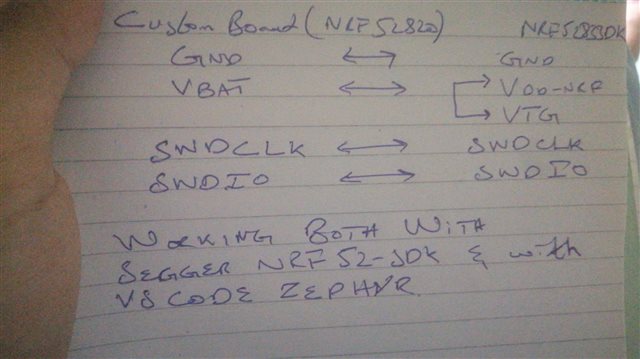 Custom Board (NRF52820) NRF52833DK
GND ↔ GND
VBAT ↔ VDD-NRF
VTG
SWDCLK ↔ SWDCLK
SWDIO ↔ SWDIO
WORKING BOTH WITH
SEGGER NRF52-SDK & with
VS CODE ZEPHYR.